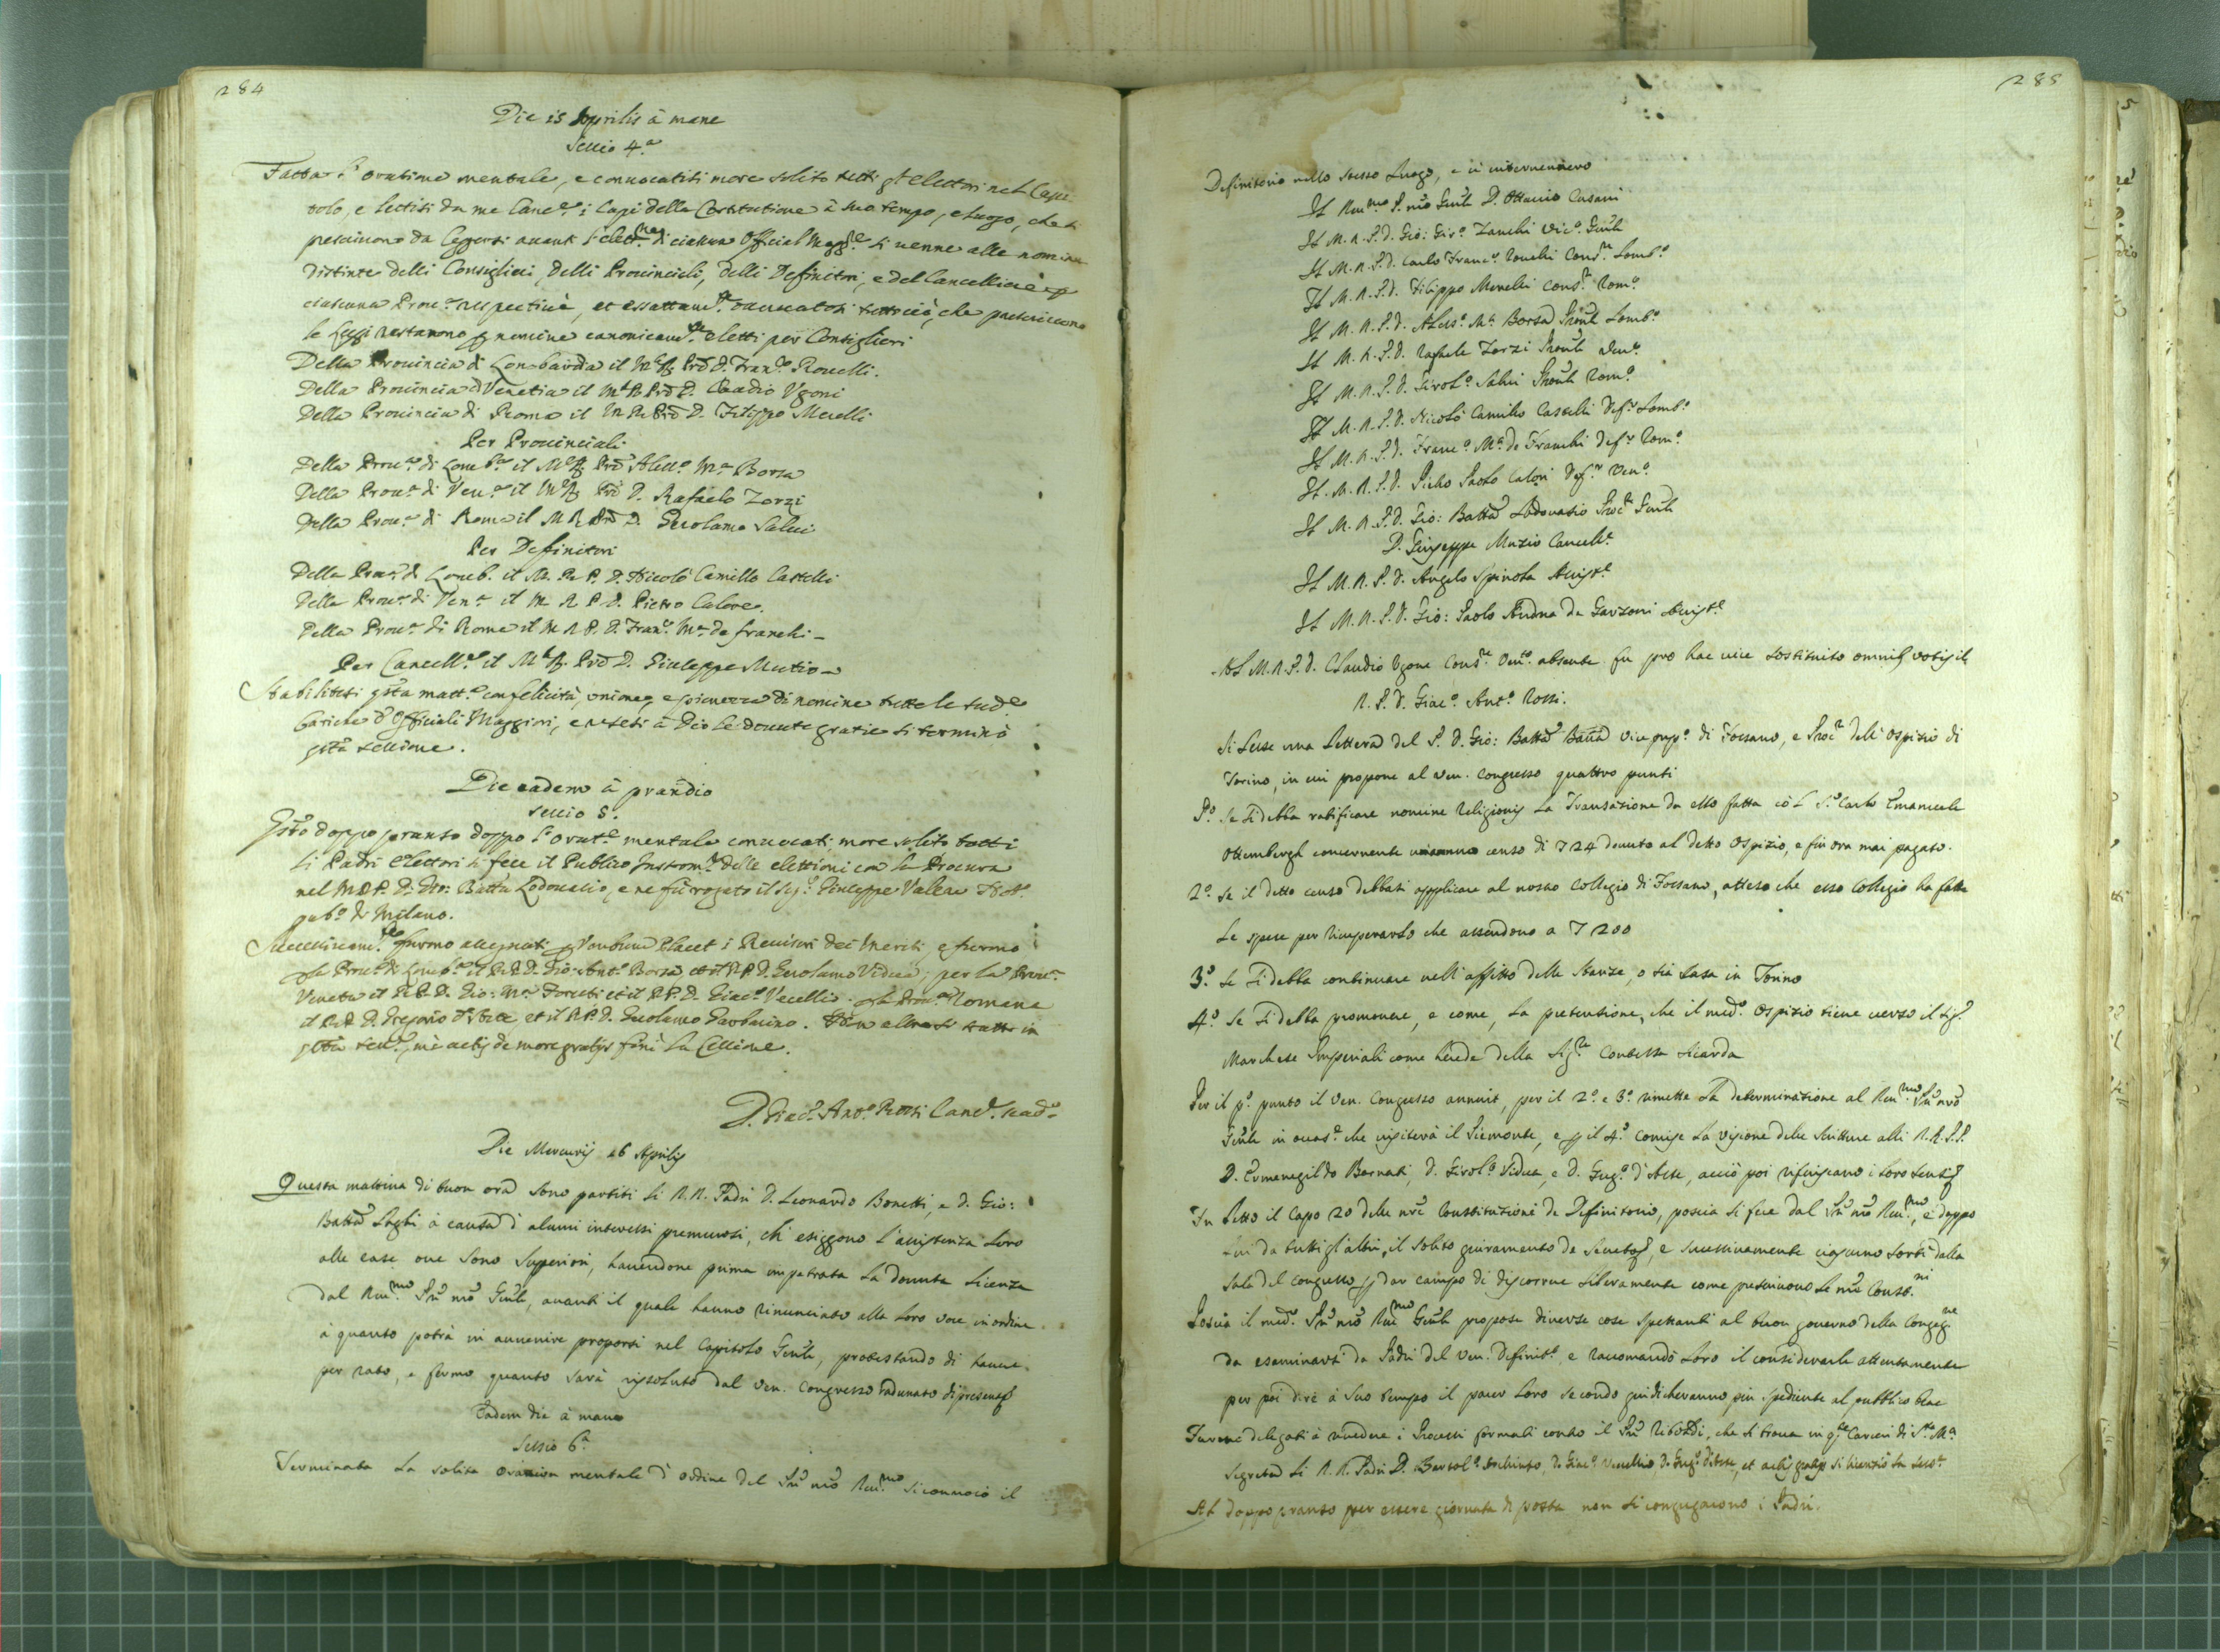 284
Die 15 Aprilis à mane
Sessio 4.a
Fatta l'oratione mentale, e convocatisi more solito tutti gl'elettori nel Capi
tolo, e lettisi da me Canc.re i Capi della Constitutione à suo tempo, e luogo, che si
prescrivono da leggersi avanti l'elett.ne di ciascun Official Magg.re si venne alle nomine
distinte delli Consiglieri, delli Provinciali, delli Definitori, e del Cancelliere p
ciascuna Prov.a respectivè, et essattam.te tutto ciò, che prescrivono
le leggi restarono p nomine canonicam.te eletti per Consiglieri
Della Provincia di Lombardia il M.R. Prē D. Fran.co Rovelli.
Della Provincia di Venetia il M.R. Prē D. Claudio Ugoni
Della Provincia di Roma il M.R. Prē D. Filippo Merelli
Per Provinciali
Della Prov.a di Lomb.a il M.R. Prē Aless.o M.a Borsa
Della Prov.a di Ven.a il M.R. Prē D. Rafaelo Zorzi
Della Prov.a di Roma il M.R. Prē D. Girolamo Salvi
Per Definitori
Della Prov.a di Lomb. il M. R. P. D. Nicolò Camillo Castelli
Della Prov.a di Ven.a il M. R. P. D. Pietro Calore.
Della Prov.a di Roma il M. R. P. D. Fran.co M.a de franchi
Per Cancell.re il M.R. Prē D. Giuseppe Mutio
Stabilitesi q̄sta matt.a con felicità, unione, e pienezza di nomine tutte le sud.e
Cariche d'Officiali Maggiori, e resesi à Dio le dovute gratie si terminò
q̄sta sessione.
Die eadem à prandio
Sessio 5.
Q̄sto doppo pranso doppo l'orat.e mentale convocati more solito tutti
li Padri Elettori si fece il Publico Instrom.to delle elettioni con la Procura
nel M.R.P. D. Gio: Batta Lodovasio, e ne fù rogato il Sig.r Giuseppe Valera Not.o
pub.o di Milano.
Successivam.te furono assegnati p Verbum Placet i Revisori dei Meriti, e furono
p la Prov.a di Lomb.a il R.P. D. Gio: Ant.o Borsa et il R.P. D. Girolamo Vidua; per la Prov.a
Veneta il R.P. D. Gio: M.a et il R.P. D. Giac.o Vecellio. p la Prov.a Romana
il R.P. D. Gregorio d'Aste et il R.P. D. Girolamo Barbarino. Non altro si trattò in
q̄sta sess.e, mà actis de more gratijs finì la sessione.
D. Giac.o Ant.o Rossi Canc.re
Die Mercurij 16 Aprilis
Questa mattina di buon ora sono partiti li R.R. Padri D. Leonardo Bonetti, e D. Gio:
Batta à causa d'alcuni interessi premurosi, ch'esiggono l'assistenza loro
alle case ove sono Superiori, havendone prima impetrata la dovuta licenza
dal Rm̄.mo Prē nrō Gnāle, avanti il quale hanno rinunciato alla loro voce in ordine
à quanto potrà in avvenire proporsi nel Capitolo Gnāle, protestando di havere
per rato, e fermo quanto sarà rissoluto dal Ven. Congresso radunato di presente
Eadem die à mane
Sessio 6.a
Terminata la solita oration mentale d'ordine del Prē nrō Rm̄.mo si convocò il
285
Definitorio nello stesso luogo, e ci intervennero
Il Rm̄.mo P. nrō Gnāle D. Ottavio Cusani
Il M. R. P. D. Gio: Gir.o Zanchi Vic.o Gnāle
Il M. R. P. D. Carlo Franc.o Rovelli Cons.re Lomb.o
Il M. R. P. D. Filippo Merelli Cons.re Rom.o
Il M. R. P. D. Aless.o M.a Borsa Provle Lomb.o
Il M. R. P. D. Rafaele Zorzi Provle Ven.o
Il M. R. P. D. Girol.o Salvi Provle Rom.o
Il M. R. P. D. Nicolò Camillo Castelli Def.re Lomb.o
Il M. R. P. D. Franc.o M.a de Franchi Def.re Rom.o
Il M. R. P. D. Pietro Paolo Calori Def.re Ven.o
Il M. R. P. D. Gio: Batta Lodovasio Proc.re Gnāle
D. Giuseppe Mutio Cancell.e
Il M. R. P. D. Angelo Spinola Assist.e
Il M. R. P. D. Gio: Paolo de Garzoni Assist.e
Al M. R. P. D. Claudio Ugone Cons.re Ven.o absente fu pro hac vice sostituito omnib. votis il
R. P. D. Giac.o Ant.o Rossi.
Si lesse una lettera del P. D. Gio: Batta Vice prep.o di Fossano, e Proc.re dell'Ospizio di
Torino, in cui propone al Ven. Congresso quattro punti
P.o Se si debba ratificare nomine Religionis la Transazione da esso fatta cō l S.r Carlo Emanuele
Ottemburgh concernente un annuo censo di 724 dovuto al detto Ospizio, e fin ora mai pagato.
2.o Se il detto censo debbasi applicare al nostro Collegio di Fossano, atteso che esso Collegio ha fatte
le spese per ricuperarlo che ascendono a 7200
3.o Se si debba continuare nell'affitto delle stanze, o sia casa in Torino
4.o Se si debba promovere, e come, la pretensione, che il med.o Ospizio tiene verso il Sig.r
Marchese Imperiali come herede della Sig.ra Contessa Sicarda
Per il p.o punto il Ven. Congresso annuit, per il 2.o e 3.o rimette la determinatione al Rm̄.mo Prē nrō
Gnāle in occas.e che visiterà il Piemonte, e p il 4.o comise la visione delle scritture alli R.R.P.P.
D. Ermenegildo Bernati, D. Girol.o Vidua, e D. Greg.o d'Aste, acciò poi riferiscano i loro sentim.ti
Fu letto il Capo 20 delle nrē Constitutioni de Definitorio, poscia si fece dal Prē nrō Rm̄.mo, e doppo
lui da tutti gl'altri, il solito giuramento de Secreto, e successivamente ciascuno sortì dalla
sala del congresso p dar campo di discorrere liberamente come prescrivono le nrē Const.ni
Poscia il med.o Prē nrō Rm̄.mo Gnāle propose diverse cose spettanti al buon governo della Congreg.ne
da esaminarsi da Padri del Ven. Definit.o, e raccomandò loro il considerarle attentamente
per poi dire à suo tempo il parer loro secondo giudicheranno più spediente al pubblico bene
Furono delegati à rivedere i Processi formati contro il Prē Ribordi, che si trova in q.te Carceri di S.ta M.a
Segreta li R. R. Padri D. Bartol.o Archinto, D. Giac.o Vecellio D. Greg.o d'Aste, et actis gratijs si licentiò la sess.e
Al doppo pranso per essere giornata di posta non si congregarono i Padri.